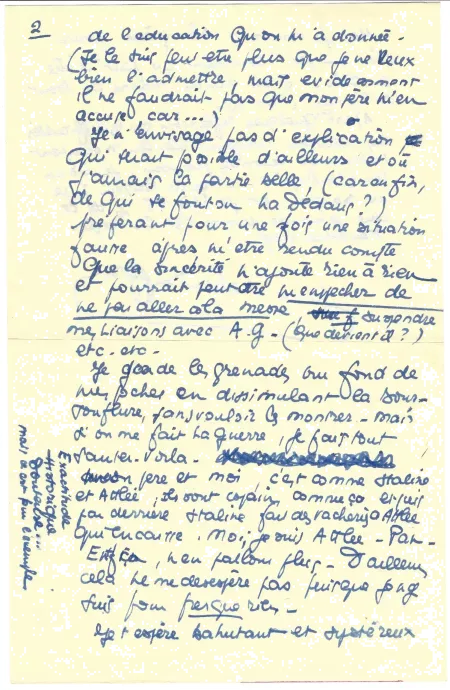 2
de l'education qu'on m'a donnée -
(Je le suis peut etre plus que je ne veux
bien l'admettre, mais evidemment
il ne faudrait pas que mon père m'en
accuse, car...)
Je n'envisage pas d'explication,
qui serait possible d'ailleurs et où
j'aurais la partie belle, (car enfin,
de qui se fout on la dedans ?)
préferant pour une fois une situation
fausse après m'être rendu compte
que la sincérité n'ajoute rien à rien
et pourrait peut être m'empecher de
ne pas aller à la messe, suspendre
mes liaisons avec A.G. - (que devient il ?)
etc. etc -
Je garde les grenades au fond de
mes poches en dissimulant la bour-
souflure, sans vouloir les montrer - mais
si on me fait la guerre, je fais tout
sauter. Voila -
père et moi, c'est comme Staline
et Atlee, ils sont copains comme ça et puis
par derrière Staline fait des vacheries à Atlee
qui encaisse. Moi, je suis Atlee - Pan -
Enfin, n'en parlons plus - D'ailleurs
cela ne me desespère pas puisque j'en
suis pour presque rien -
Je t'espère bahutant et systéreux
Exactitude
historique
douteuse...
mais c'est pour l'exemple